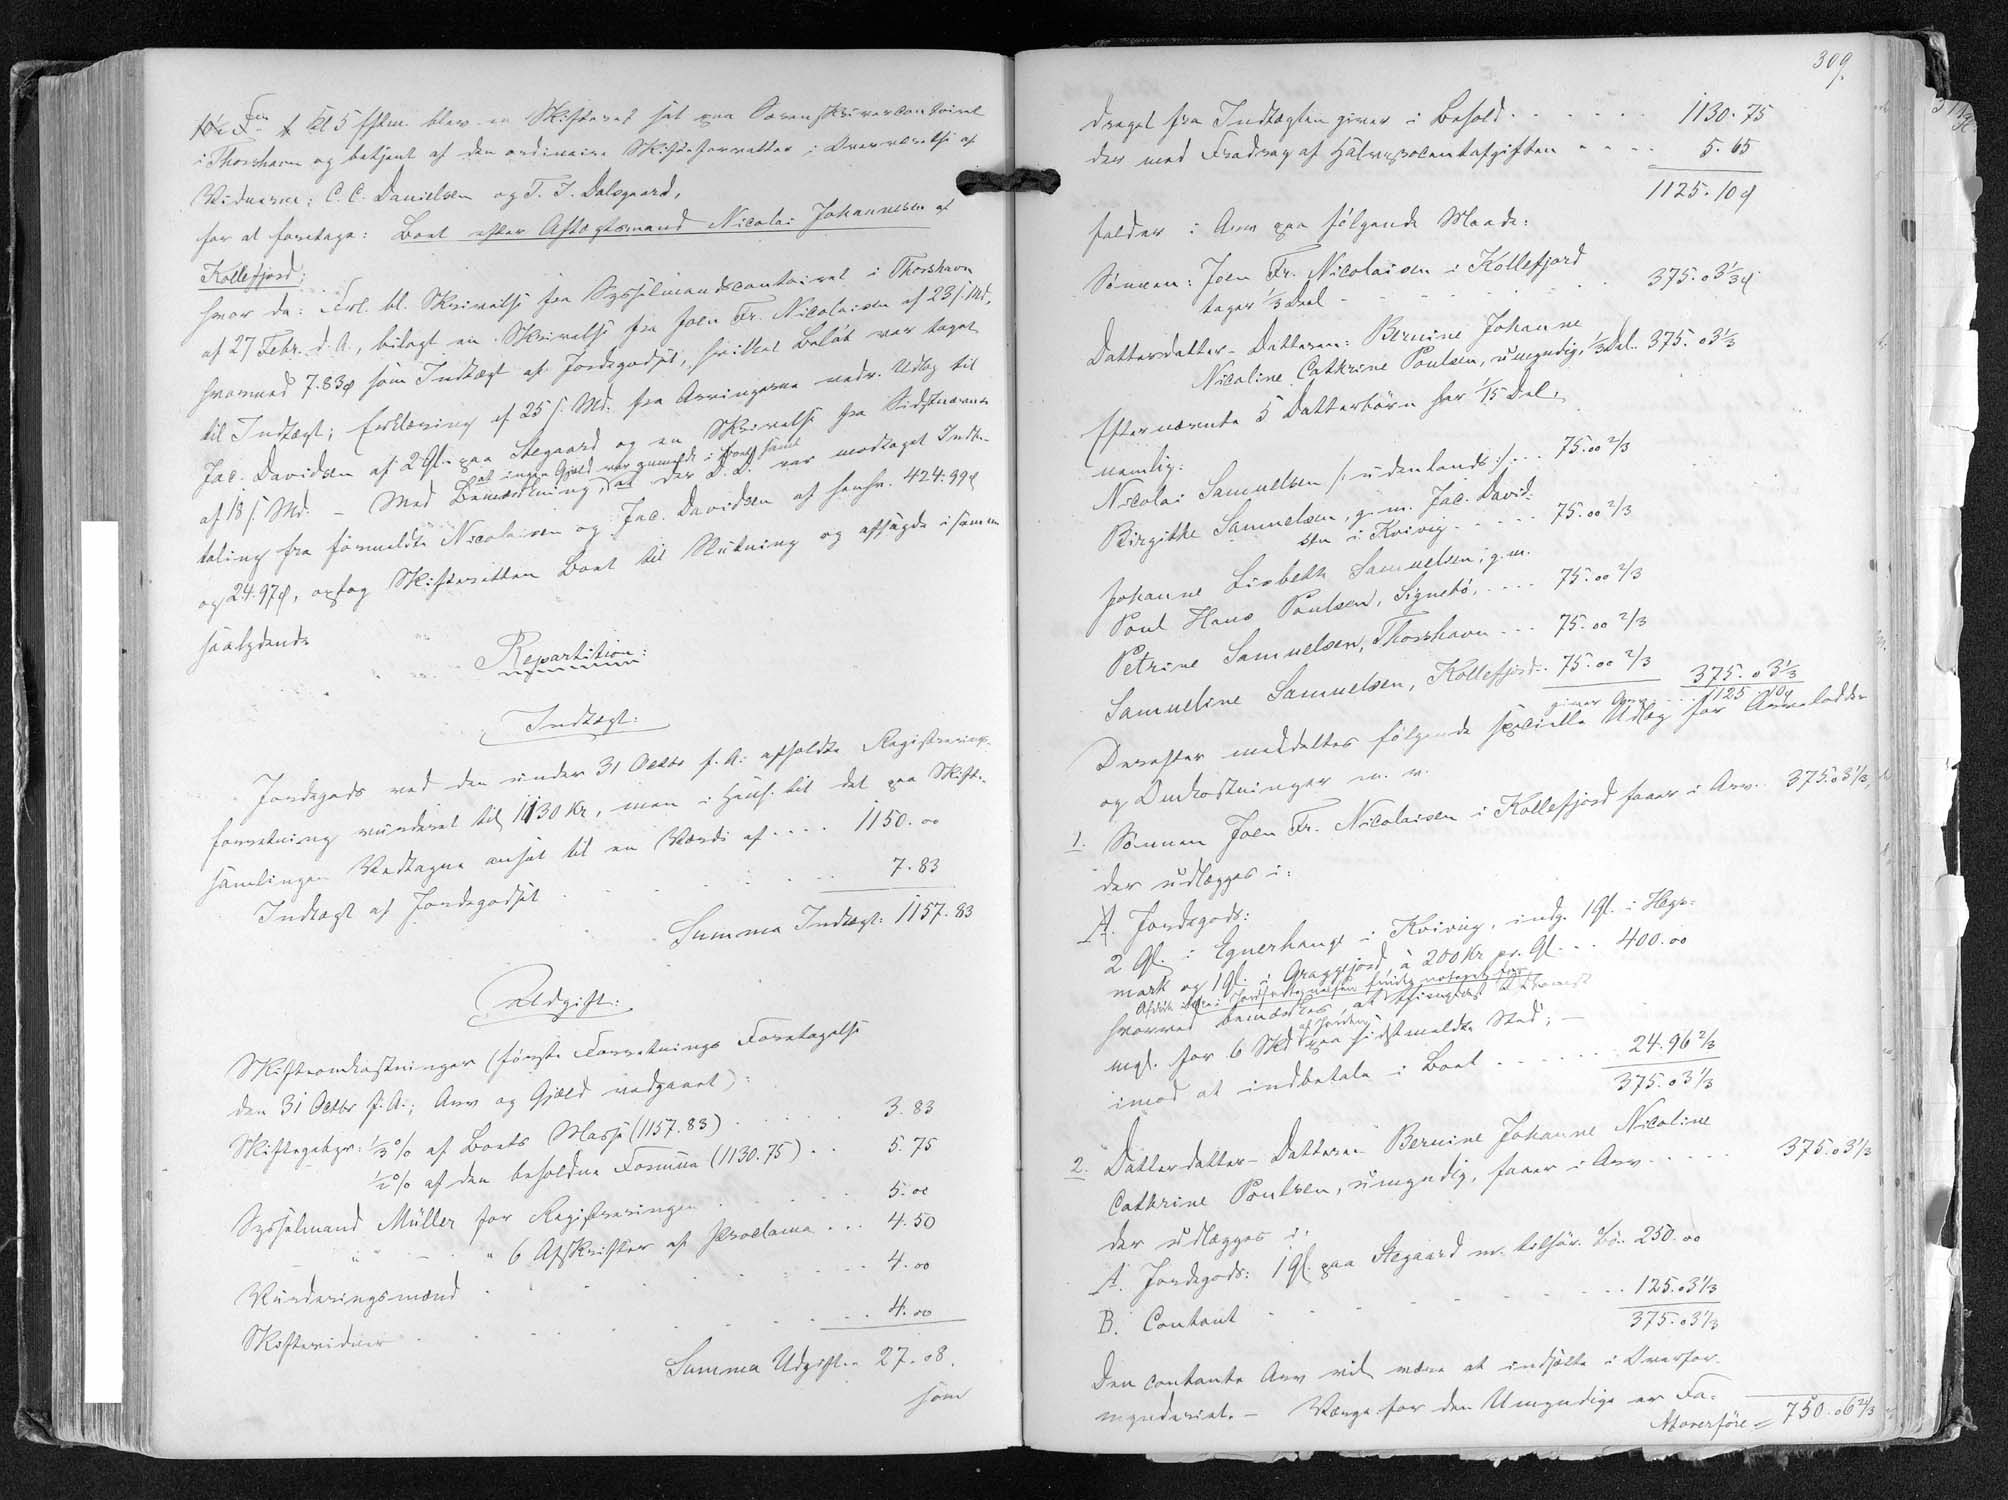 Kl 5 Eftm. blev en Skifteret sat paa Sorenskrivercontoiret
i Thorshavn og betjent af den ordinaire Skifteforvalter i Overværelse af
Vidnerne: C. C. Danielsen og T. J. Dalsgaard,
for at foretage: Boet efter Aftægtsmand Nicolai Johannesen af
Kollefjord;
hvor da: Frl. bl. Skrivelse fra Sysselmandscontoiret i Thorshavn
af 27 Febr. d. A., bilagt en Skrivelse fra Joen Fr. Nicolaisen af 23 s. Md.
hvormed 7.83 som Indtægt af Jordegodset, hvilket Beløb var taget
til Indtægt; Erklæring af 25 s. Md. fra Arvingerne vedr. Udlæg til
Jac. Davidsen af 2 Gl. paa Stegaard og en Skrivelse fra Sidstnævnte
af 18 s. Md. – Med Bemærkning, at ingen Gjæld var anmeldt i Boet samt at der D. D. var modtaget Indbe-
taling fra formeldte Nicolaisen og Jac. Davidsen af henhv. 424.99
og 24.97, optog Skifteretten Boet til Slutning og afsagde i samme
saalydende
Repartition:
Indtægt:
Jordegods ved den under 31 Octbr f. A. afholdte Registrerings-
forretning vurderet til 1130 Kr, men i Henh. til det paa Skifte-
samlingen Vedtagne ansat til en Værdi af .... 1150.00
Indtægt af Jordegodset 7.83
Summa Indtægt: 1157.83
Udgift:
Skifteomkostninger (første Forretnings Foretagelse
den 31 Octbr f. A.; Arv og Gjæld vedgaaet):
Skiftegebyr: 1/3 % af Boets Masse (1157.83) . . . . 3.83
1/2 % af den beholdne Formue (1130.75) . . 5.75
Sysselmand Müller for Registreringen . . . 5.00
" – " 6 Afskrifter af Proclama ... 4.50
Vurderingsmænd . . . . 4.00
Skiftevidner . . . . 4.00
Summa Udgift.. 27.08.
som
309.
draget fra Indtægten giver i Behold . . . . . . 1130.75
der med Fradrag af Halvprocentafgiften . . . . 5.65
1125.10
falder i Arv paa følgende Maade:
Sønnen: Joen Fr. Nicolaisen i Kollefjord
tager 1/3 Deel - - - - 375.03 1/3
Datterdatter-Datteren: Bernine Johanne
Nicoline Cathrine Poulsen, umyndig, 1/3 Del. 375.03 1/3
Efternævnte 5 Datterbørn hver 1/15 Del,
nemlig:
Nicolai Samuelsen /: udenlands :/ . . 75.00 2/3
Birgitte Samuelsen, g. m. Jac. David-
sen i Kvivig . . . . . 75.00 2/3
Johanne Lisbeth Samuelsen, g. m.
Poul Hans Poulsen, Signebø, .... 75.00 2/3
Petrine Samuelsen, Thorshavn ... 75.00 2/3
Samueline Samuelsen, Kollefjord.. 75.00 2/3 375.03 1/3
giver Arv ... 1125.10
Derefter meddeltes følgende specielle Udlæg for Arvelodder
og Omkostninger m. v.
1. Sønnen Joen Fr. Nicolaisen i Kollefjord faaer i Arv. 375.03 1/3,
der udlægges i:
A. Jordegods:
2 Gl. i Egnerhauge i Kvivig, indg. 1 Gl. i Hege-
mark og 1 Gl. i Graggejord, à 200 Kr pr. Gl. . . 400.00
hvorved bemærkes at thinglæst Adkomst
mgl. for 6 Skd af Jorden paa sidstmeldte Sted; –
imod at indbetale i Boet . . . . . . 24.96 2/3
375.03 1/3
2. Datterdatter-Datteren Bernine Johanne Nicoline
Cathrine Poulsen, umyndig, faaer i Arv . . . . . 375.03 1/3
der udlægges i:
A. Jordegods: 1 Gl. paa Stegaard m. tilhør. Lø. 250.00
B. Contant - - - - - 125.03 1/3
375.03 1/3
Den contante Arv vil være at indsætte i Overfor-
mynderiet. – Værge for den Umyndige er Fa-
At overføre = 750.06 2/3